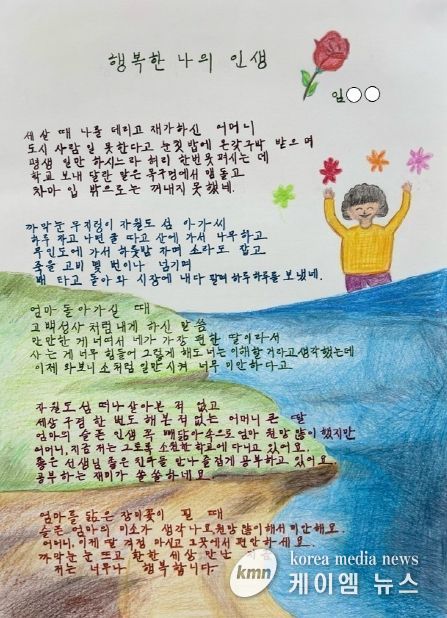 행복한 나의 인생
임○○
세살 때 나를 데리고 재가하신 어머니
도시 사람 일 못한다고 눈칫밥에 온갖 구박 받으며
평생 일만 하시느라 허리 한번 못 펴시는 데
학교 보내 달란 말은 목구멍에서 맴돌고
차마 입 밖으로는 꺼내지 못했네.
까막눈 무지렁이 자월도 섬 아가씨
하루 자고 나면 굴 따고 산에 가서 나무하고
무인도에 가서 하룻밤 자며 소라도 잡고
죽을 고비 몇 번이나 넘기며
배 타고 돌아와 시장에 내다 팔며 하루하루를 보냈네.
엄마 돌아가실 때
고백성사처럼 내게 하신 말씀
만만한 게 너여서 네가 가장 편한 딸이라서
사는 게 너무 힘들어 그렇게 해도 너는 이해할 거라고 생각했는데
이제 와보니 소처럼 일만 시켜 너무 미안하다고.
자월도 섬 떠나 살아본 적 없고
세상 구경 한 번도 해본 적 없는 어머니 큰 딸
엄마의 슬픈 인생 꼭 빼닮아 속으로 엄마 원망 많이 했지만
어머니, 지금 저는 그토록 소원한 학교에 다니고 있어요.
좋은 선생님 좋은 친구를 만나 즐겁게 공부하고 있어요.
공부하는 재미가 쏠쏠하네요.
엄마를 닮은 장미꽃이 필 때
슬픈 엄마의 미소가 생각나요. 원망 많이 해서 미안해요.
어머니, 이제 딸 걱정 마시고 그곳에서 편안하세요.
까막눈 뜨고 환한 세상 만난
저는 너무나 행복합니다.
kmn
korea media news
케이엠 뉴스